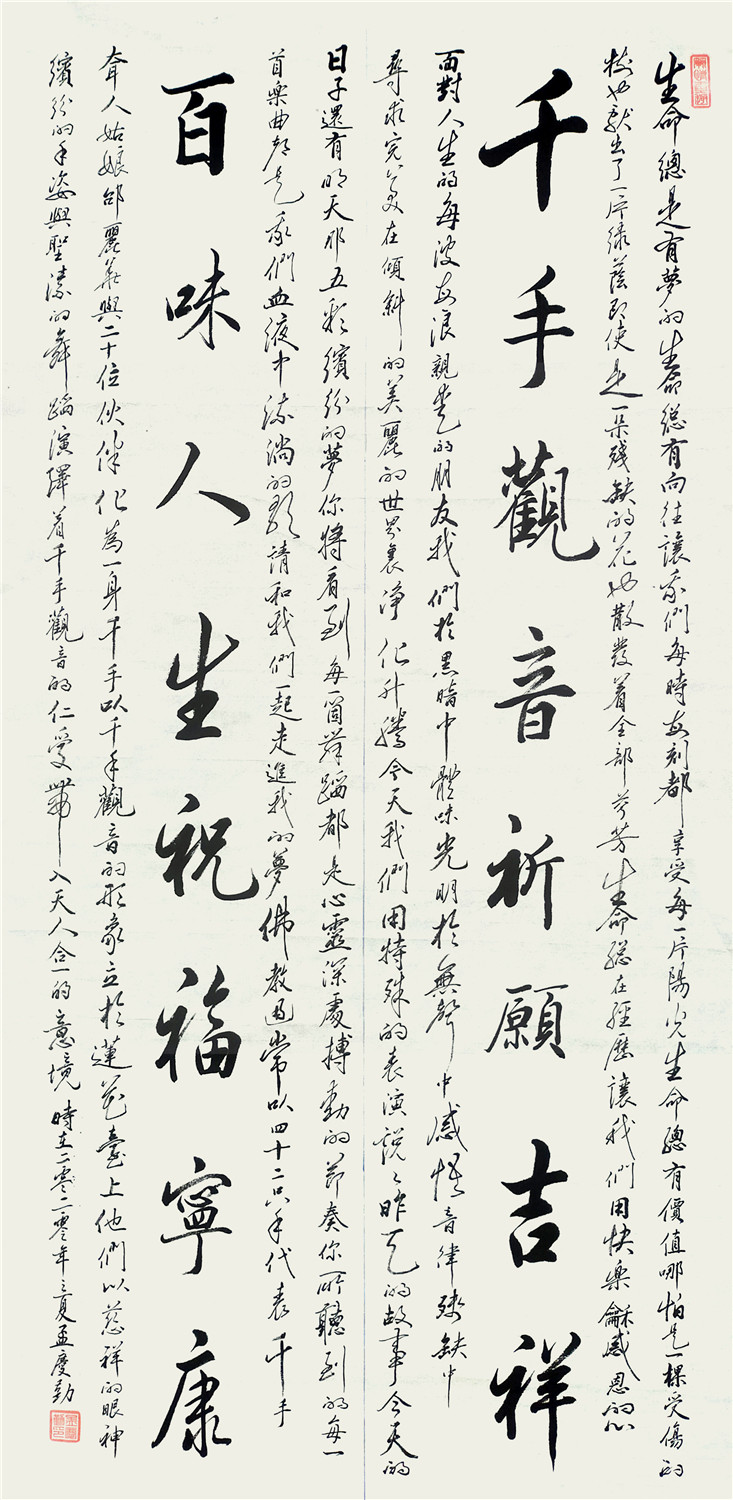 生命總是有夢的生命總有向往讓我們每時每刻都享受每一片陽光生命總有價值哪怕是一棵受傷的
樹也獻出了一片綠蔭即使是一朵殘缺的花也散發着全部芬芳生命總在經歷讓我們用快樂龢感恩的心
千手觀音祈願吉祥
面對人生的每波每浪親愛的朋友我們於黑暗中體味光明於無聲中感悟音律殘缺中
尋求完美在傾斜的美麗的世界裏淨化升騰今天我們用特殊的表演說說昨天的故事今天的
日子還有明天那五彩繽紛的夢你將看到每一箇舞蹈都是心靈深處搏動的節奏你所聽到的每一
首樂曲都是我們血液中流淌的歌請和我們一起走進我的夢佛教通常以四十二只手代表千手
百味人生祝福寧康
聾人姑娘邰麗華與二十位伙伴化為一身千手以千手觀音的形象立於蓮花臺上他們以慈祥的眼神
繽紛的手姿與聖潔的舞蹈演繹着千手觀音的仁愛帶入天人合一的意境時在二零二零年之夏孟慶勤